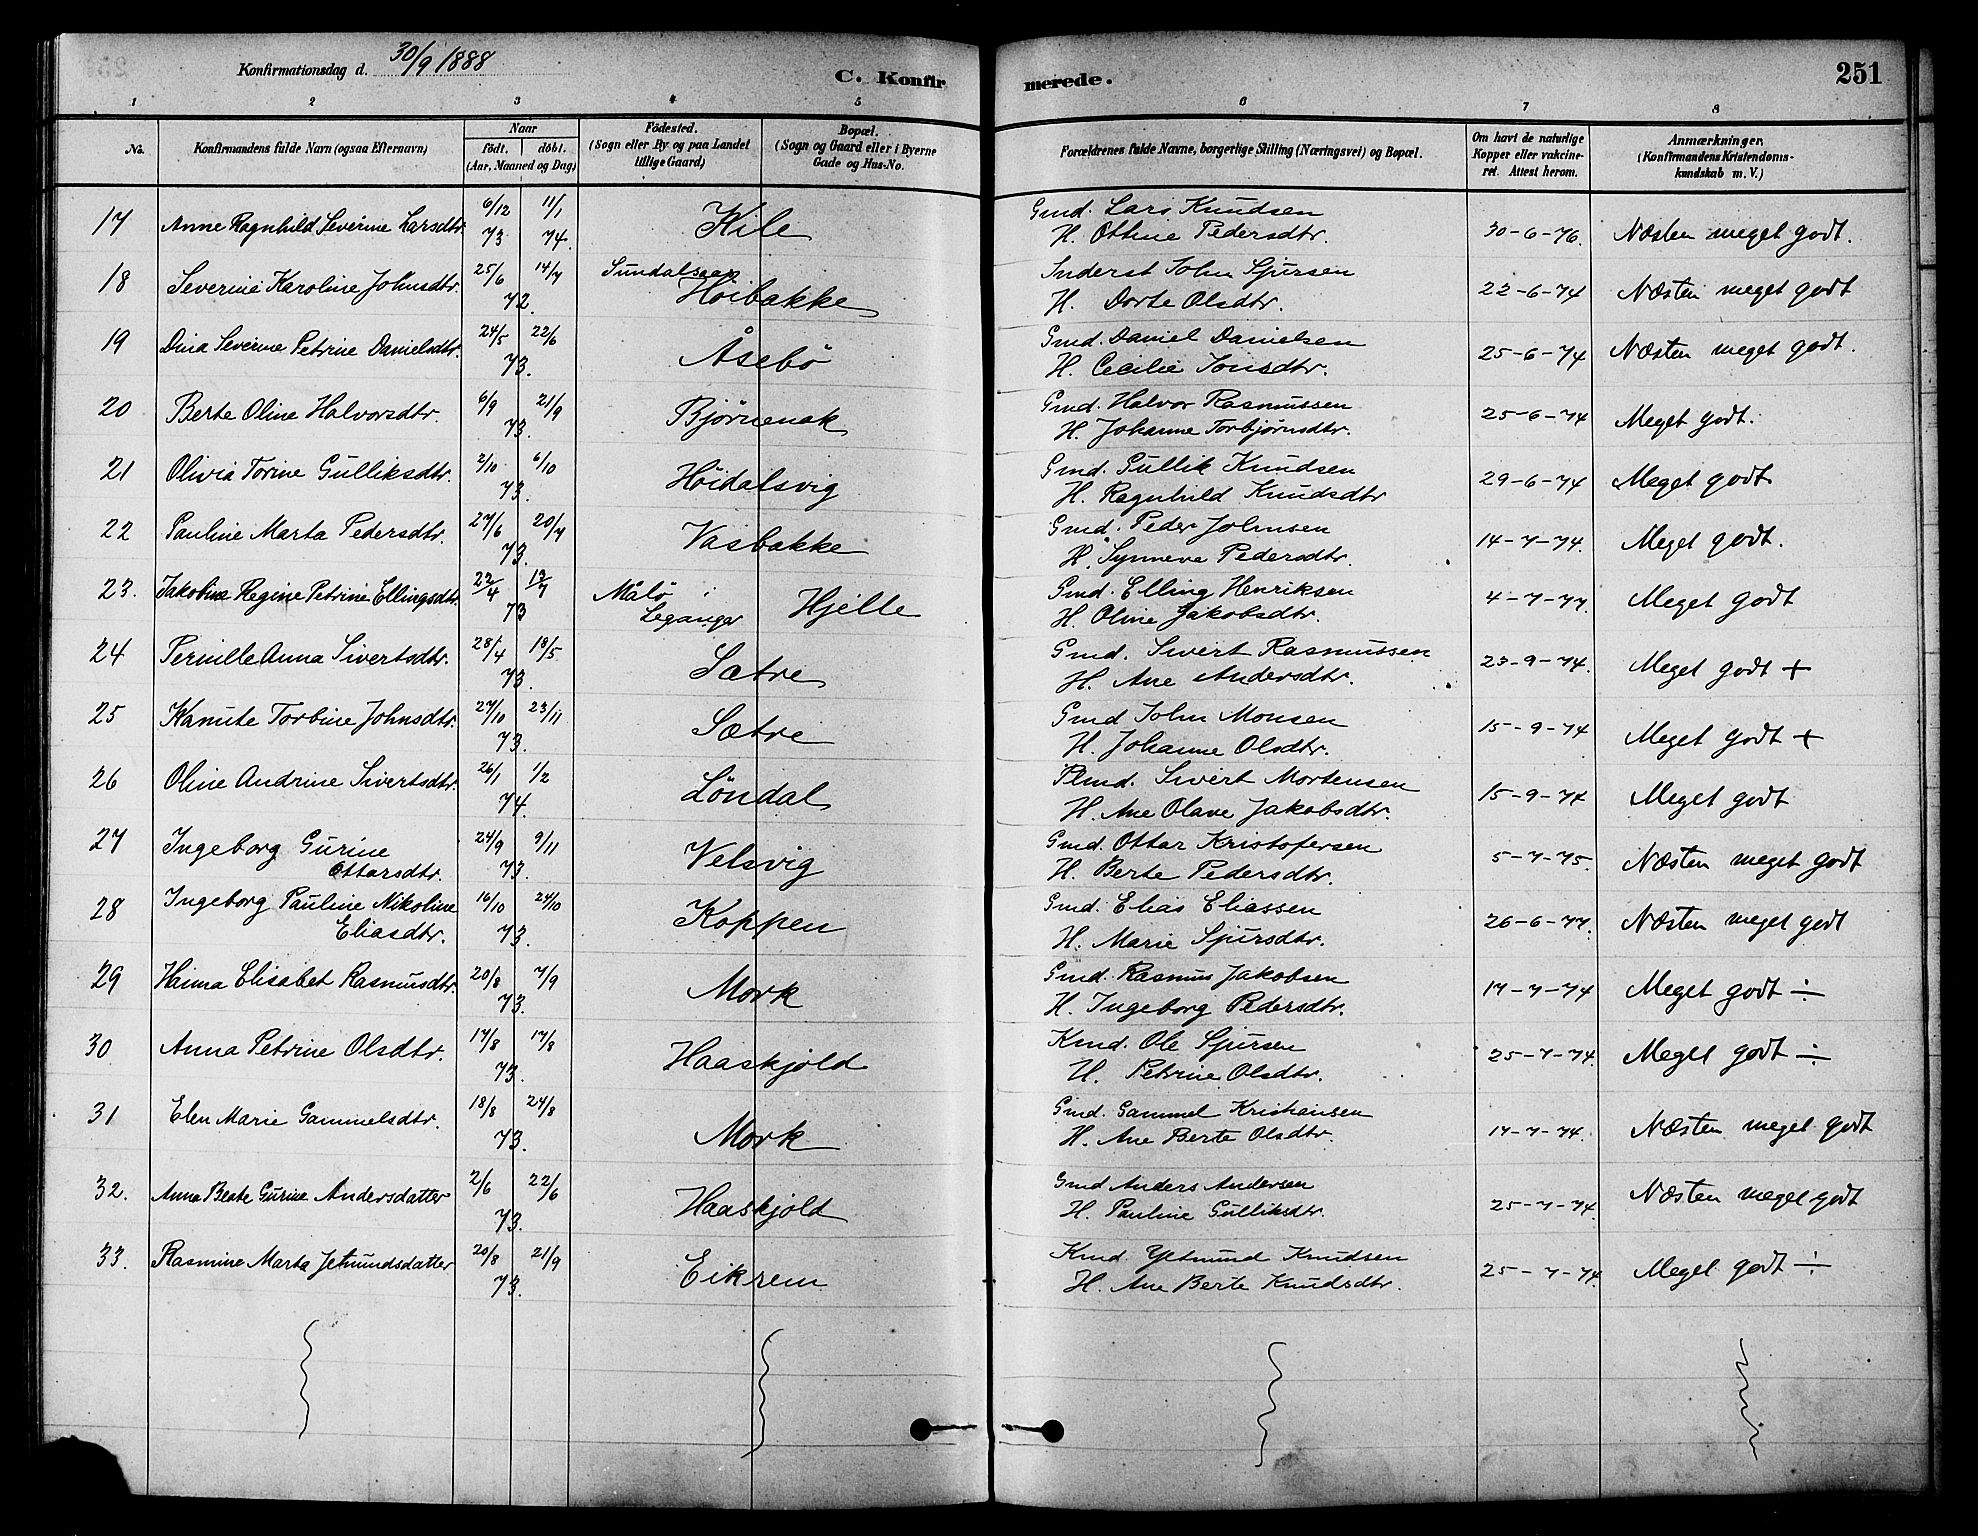 Konfirmationsdag d. 30/9 1888
C. Konfirmerede.
251
1 2 3 4 5 6 7 8
No.
Konfirmandens fulde Navn (ogsaa Efternavn)
Naar
født. døbt.
(Aar, Maaned og Dag)
Födested.
(Sogn eller By og paa Landet
tillige Gaard)
Bopæl.
(Sogn og Gaard eller i Byerne
Gade og Hus-No.
Forældrenes fulde Navne, borgerlige Stilling (Næringsvei) og Bopæl.
Om havt de naturlige
Kopper eller vakcine-
ret. Attest herom.
Anmærkninger.
(Konfirmandens Kristendoms-
kundskab m. V.)
17 Anne Ragnhild Severine Larsdtr. 6/12 11/1 Hile Gmd. Lars Knudsen 30-6-76. Næsten meget godt.
73 74. H. Ottine Pedersdtr.
18 Severine Karoline Johnsdtr. 25/6 14/7 Sundalsaas Höibakke Inderst John Sjursen 22-6-74 Næsten meget godt
72. H. Dorte Olsdtr.
19 Dina Severine Petrine Danielsdtr. 24/5 22/6 Åsebö Gmd. Daniel Danielsen 25-6-74 Næsten meget godt.
73. H. Cecilie Jonsdtr.
20 Berte Oline Halvorsdtr. 6/9 21/9 Bjørnenak Gmd. Halvor Rasmussen 25-6-74 Meget godt.
73. H. Johanne Torbjørnsdtr.
21 Olivia Torine Gulliksdtr. 2/10 6/10 Höidalsvig Gmd. Gullik Knudsen 29-6-74 Meget godt
73. H. Ragnhild Knudsdtr
22 Pauline Marta Pedersdtr. 27/6 20/7 Vasbakke Gmd. Peder Johnsen 14-7-74. Meget godt.
73. H. Synneve Pedersdtr.
23. Jakobine Regine Petrine Ellingsdtr. 22/4 13/7 Målö i Hjelle Gmd. Elling Henriksen 4-7-77. Meget godt
73 Leganger H. Oline Jakobsdtr.
24 Pernille Anna Sivertsdtr. 28/4 18/5 Sætre Gmd. Sivert Rasmussen 23-9-74. Meget godt +
73. H. Ane Andersdtr.
25 Kanute Torbine Johnsdtr. 27/10 23/11 Sætre Gmd John Monsen 15-9-74 Meget godt +
73. H. Johanne Olsdtr.
26 Oline Andrine Sivertsdtr. 26/1 1/2 Löndal Plmd. Sivert Mortensen 15-9-74 Meget godt
74. H. Ane Olave Jakobsdtr.
27 Ingeborg Gurine 24/9 9/11 Velsvig Gmd. Ottar Kristofersen 5-7-75. Næsten meget godt
Ottarsdtr. 73. H. Berte Pedersdtr.
28 Ingeborg Pauline Nikoline 16/10 24/10 Koppen Gmd. Elias Eliassen 26-6-77. Næsten meget godt
Eliasdtr. 73. H. Marie Sjursdtr.
29 Hanna Elisabet Rasmusdtr. 20/8 7/9 Mork Gmd. Rasmus Jakobsen 17-7-74 Meget godt ÷
73. H. Ingeborg Pedersdtr.
30 Anna Petrine Olsdtr. 17/8 17/8 Haaskjold Kmd. Ole Sjursen 25-7-74. Meget godt ÷
73. H. Petrine Olsdtr.
31 Elen Marie Gammelsdtr. 18/8 24/8 Mork Gmd. Gammel Kristiansen 17-7-74. Næsten meget godt
73. H. Ane Berte Olsdtr.
32. Anna Beate Gurine Andersdatter 2/6 22/6 Haaskjold Gmd Anders Andersen 25-7-74. Næsten meget godt
73. H. Pauline Gulliksdtr.
33. Rasmine Marta Jetmundsdatter 20/8 21/9 Eikrem Kmd. Jetmund Knudsen 25-7-74. Meget godt ÷
73. H. Ane Berte Knudsdtr.